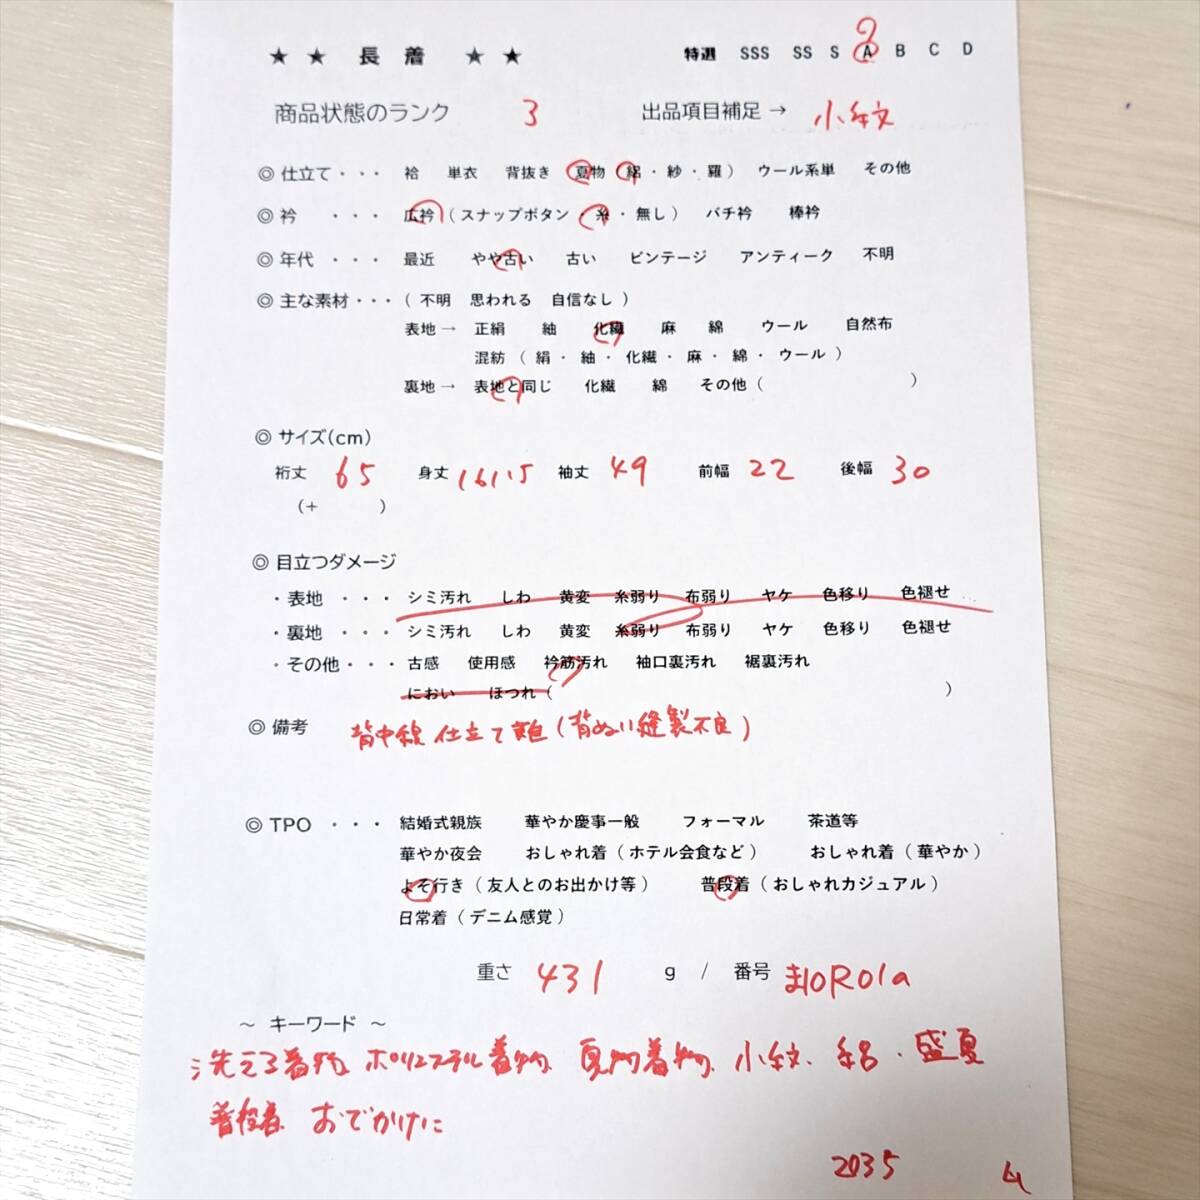 ★ ★ 長 着 ★ ★ 特選 SSS SS S A B C D
商品状態のランク 3 出品項目補足 → 小紋
◎ 仕立て ・・・ 袷 単衣 背抜き 夏物 ( 絽 ・ 紗 ・ 羅 ) ウール系単 その他
◎ 衿 ・・・ 広衿 ( スナップボタン ・ 糸 ・ 無し ) バチ衿 棒衿
◎ 年代 ・・・ 最近 やや古い 古い ビンテージ アンティーク 不明
◎ 主な素材 ・・・ ( 不明 思われる 自信なし )
表地 → 正絹 紬 化繊 麻 綿 ウール 自然布
混紡 ( 絹 ・ 紬 ・ 化繊 ・ 麻 ・ 綿 ・ ウール )
裏地 → 表地と同じ 化繊 綿 その他 ( )
◎ サイズ(cm)
裄丈 65 身丈 161.5 袖丈 49 前幅 22 後幅 30
(+ )
◎ 目立つダメージ
・ 表地 ・・・ シミ汚れ しわ 黄変 糸弱り 布弱り ヤケ 色移り 色褪せ
・ 裏地 ・・・ シミ汚れ しわ 黄変 糸弱り 布弱り ヤケ 色移り 色褪せ
・ その他 ・・・ 古感 使用感 衿筋汚れ 袖口裏汚れ 裾裏汚れ
におい ほつれ ( )
◎ 備考 背中線 仕立て難 (背ぬい縫製不良)
◎ TPO ・・・ 結婚式親族 華やか慶事一般 フォーマル 茶道等
華やか夜会 おしゃれ着 ( ホテル会食など ) おしゃれ着 ( 華やか )
よそ行き ( 友人とのお出かけ等 ) 普段着 ( おしゃれカジュアル )
日常着 ( デニム感覚 )
重さ 431 g / 番号 ま10R01a
～ キーワード ～
洗える着物、ポリエステル着物、夏物着物、小紋、絽、盛夏
普段着、おでかけに
2035 ム